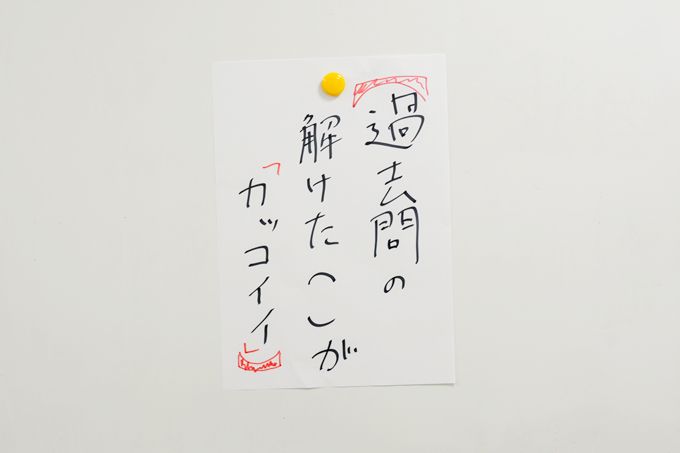 過去問の
解けた（）が
「カッコイイ」